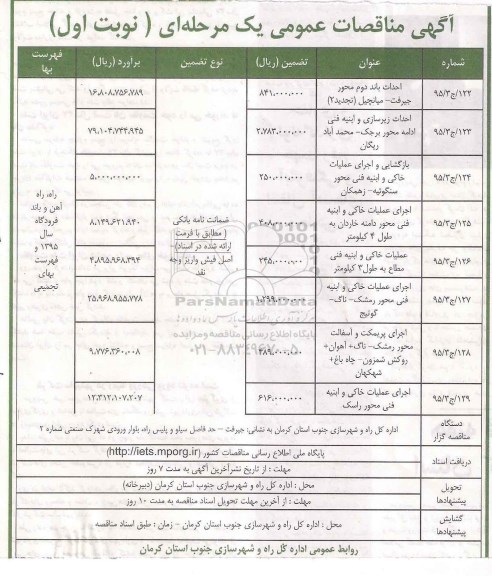 آگهی مناقصات عمومی یک مرحله‌ای ( نوبت اول)
شماره عنوان تضمین (ریال) نوع تضمین برآورد (ریال) فهرست بها
۹۵/۳/ج/۱۲۲ احداث باند دوم محور جیرفت- میانچیل (تجدید۲) ۸۴۱.۰۰۰.۰۰۰ ۱۶.۸۰۸.۷۵۶.۷۸۹
۹۵/۳/ج/۱۲۳ احداث زیرسازی و ابنیه فنی ادامه محور برجک- محمد آباد ریگان ۲.۷۸۳.۰۰۰.۰۰۰ ۷۹.۱۰۴.۷۴۴.۹۴۵
۹۵/۳/ج/۱۲۴ بازگشایی و اجرای عملیات خاکی و ابنیه فنی محور سنگوئیه- زهمکان ۲۵۰.۰۰۰.۰۰۰ ۵.۰۰۰.۰۰۰.۰۰۰
۹۵/۳/ج/۱۲۵ اجرای عملیات خاکی و ابنیه فنی محور دامنه خاردان به طول ۴ کیلومتر ۴۰۸.۰۰۰.۰۰۰ ۸.۱۴۹.۶۲۱.۹۴۰
۹۵/۳/ج/۱۲۶ عملیات خاکی و ابنیه فنی مطاع به طول۳ کیلومتر ۲۴۵.۰۰۰.۰۰۰ ۴.۸۹۵.۹۶۸.۳۹۴
۹۵/۳/ج/۱۲۷ اجرای عملیات خاکی و ابنیه فنی محور رمشک- تاک- گوتیج ۲۵.۹۶۸.۹۵۵.۷۷۸
۹۵/۳/ج/۱۲۸ اجرای پریمکت و آسفالت محور رمشک- تاگ+ آهوان+ روکش شمزون- چاه باغ+ شهکهان ۴۸۹.۰۰۰.۰۰۰ ۹.۷۷۶.۳۶۰.۰۰۸
۹۵/۳/ج/۱۲۹ اجرای عملیات خاکی و ابنیه فنی محور راسک ۶۱۶.۰۰۰.۰۰۰ ۱۲.۳۱۲.۱۰۷.۲۰۷
ضمانت نامه بانکی
( مطابق با فرمت
ارائه شده در اسناد)-
اصل فیش واریز وجه
نقد
راه، راه
آهن و باند
فرودگاه
سال
۱۳۹۵ و
فهرست
بهای
تجمیعی
ParsNamadData
پایگاه اطلاع رسانی مناقصه و مزایده
۰۲۱-۸۸۳۴۹۶۷۰
دستگاه مناقصه گزار اداره کل راه و شهرسازی جنوب استان کرمان به نشانی: جیرفت – حد فاصل سیلو و پلیس راه، بلوار ورودی شهرک صنعتی شماره ۲
دریافت اسناد پایگاه ملی اطلاع رسانی مناقصات کشور (http://iets.mporg.ir)
مهلت : از تاریخ نشرآخرین آگهی به مدت ۷ روز
تحویل پیشنهادها محل : اداره کل راه و شهرسازی جنوب استان کرمان (دبیرخانه)
مهلت : از آخرین مهلت تحویل اسناد مناقصه به مدت ۱۰ روز
گشایش پیشنهادها محل : اداره کل راه و شهرسازی جنوب استان کرمان - زمان : طبق اسناد مناقصه
روابط عمومی اداره کل راه و شهرسازی جنوب استان کرمان